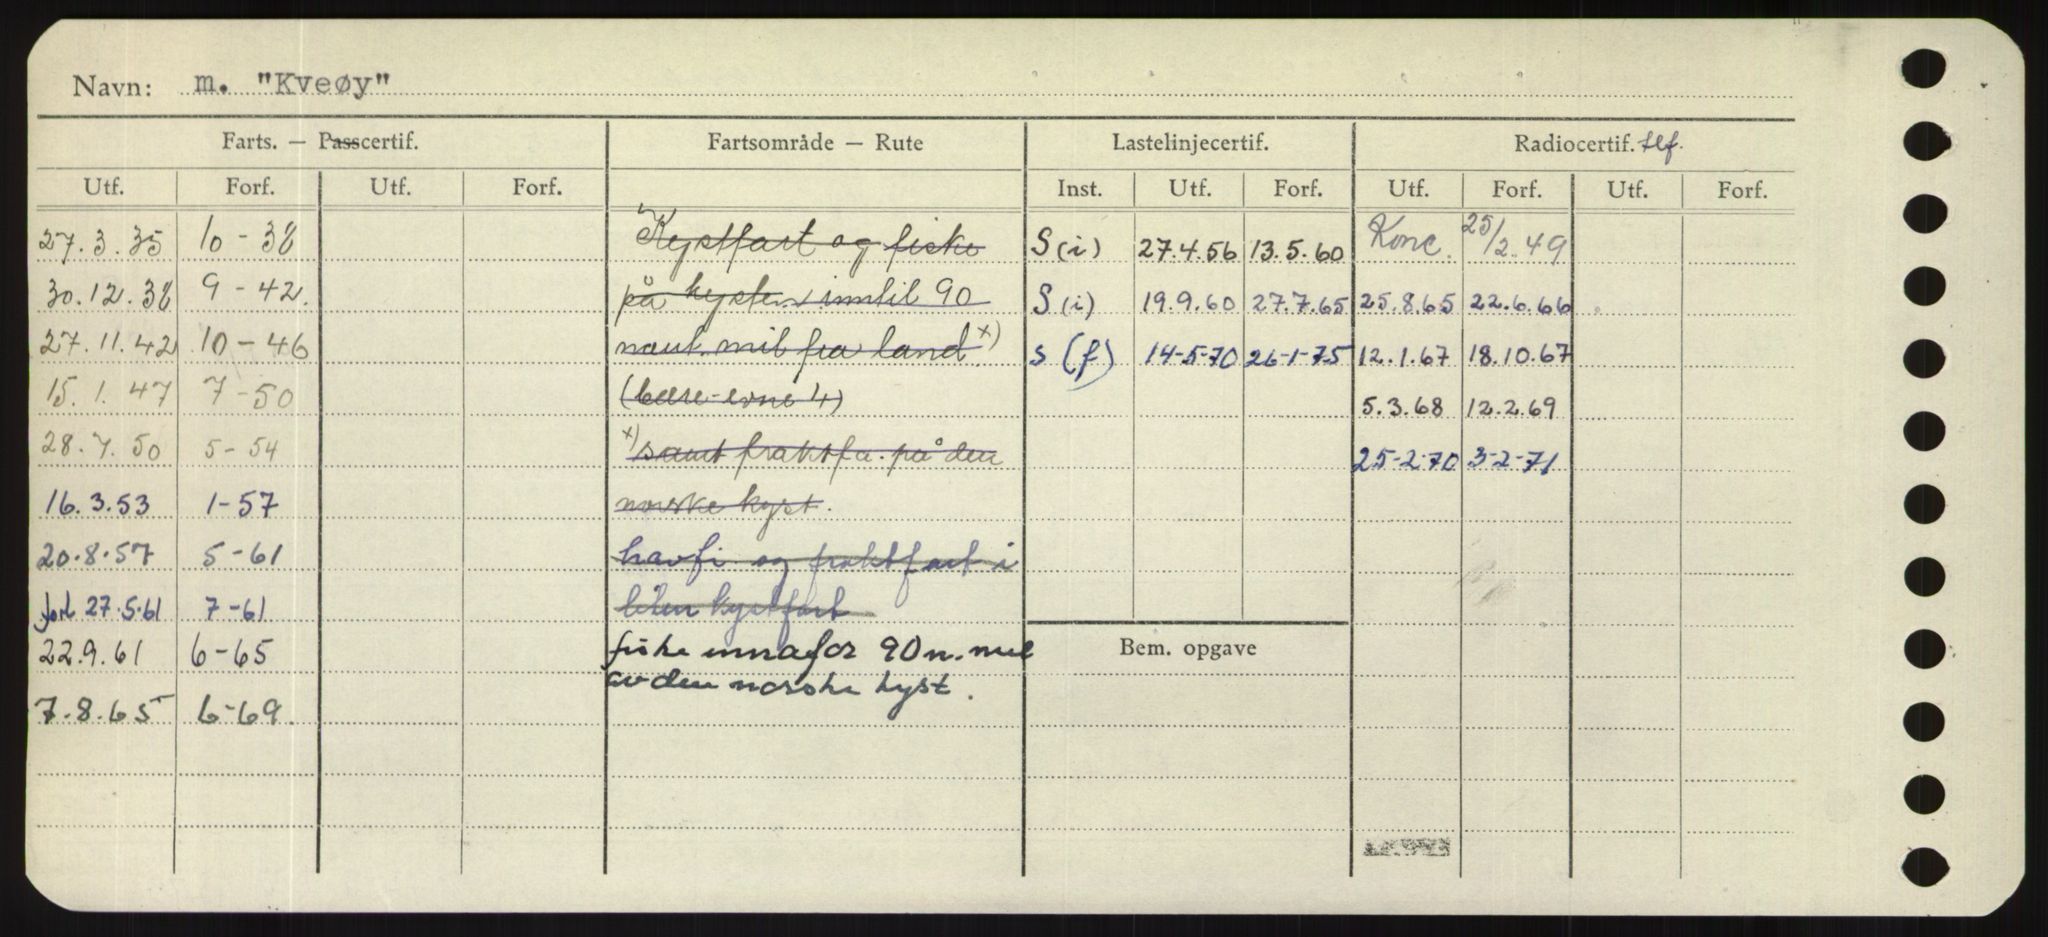 Navn: m. "Kveøy"
Farts. — Passcertif. Fartsområde — Rute Lastelinjecertif. Radiocertif. tlf.
Utf. Forf. Utf. Forf. Inst. Utf. Forf. Utf. Forf. Utf. Forf.
27.3.35 10-38 Kystfart og fiske S (i) 27.4.56 13.5.60 Konc. 25/2.49
30.12.38 9-42. på kysten inntil 90 S (i) 19.9.60 27.7.65 25.8.65 22.6.66
27.11.42 10-46 naut. mil fra land x) s (f) 14-5-70 26-1-75 12.1.67 18.10.67
15.1.47 7-50 (bære-evne 4) 5.3.68 12.2.69
28.7.50 5-54 x) samt fraktfa. på den 25-2-70 3-2-71
16.3.53 1-57 norske kyst.
20.8.57 5-61 havfi og fraktfart i
forl 27.5.61 7-61 liten kystfart
22.9.61 6-65 fiske innafor 90 n. mil Bem. opgave
av den norske kyst.
7.8.65 6-69